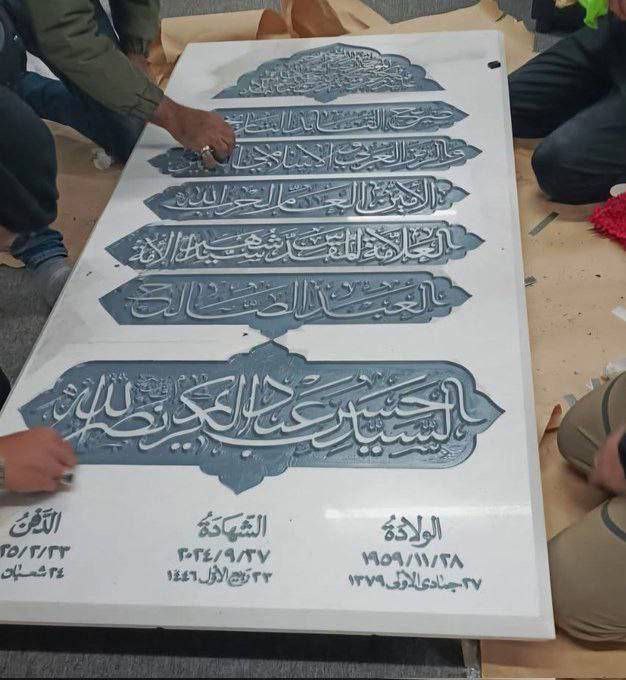 ضريح القائد التاريخي
الأمين العام لحزب الله
العلامة المقدس شهيد الأمة
العبد الصالح
السيد حسن عبد الكريم نصر الله
الولادة
١٩٥٩/١١/٢٨
٢٧ جمادى الأولى ١٣٧٩
الشهادة
٢٠٢٤/٩/٢٧
٢٣ ربيع الأول ١٤٤٦
الدفن
٢٥/٢/٢٣
٢٤ شعبان